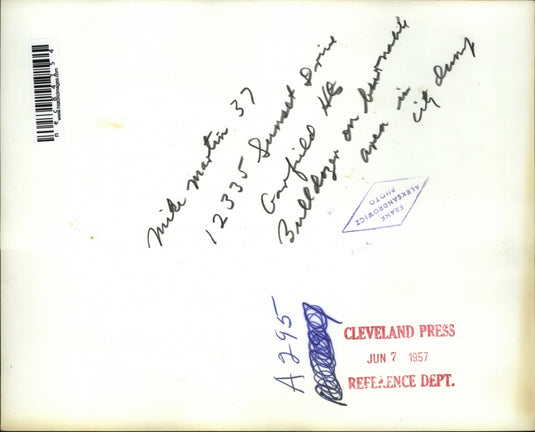 Mike Martin 37
12335 Sunset Drive
Garfield Hts
Bulldozer on burnable
area in
city dump
FRANK
ALEKSANDROWICZ
PHOTO
A295
CLEVELAND PRESS
JUN 7 1957
REFERENCE DEPT.